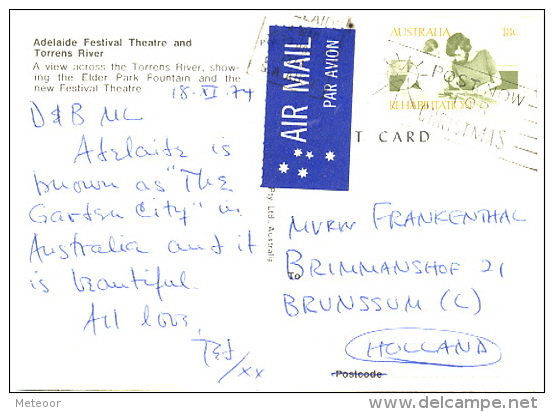 Adelaide Festival Theatre and
Torrens River
A view across the Torrens River, show-
ing the Elder Park Fountain and the
new Festival Theatre
18.VI.74
D&B MC
Adelaide is
known as "The
Garden City" in
Australia and it
is beautiful.
All love,
Ted/xx
AIR MAIL
PAR AVION
AUSTRALIA 18c
REHABILITATION
POST NOW
FOR
CHRISTMAS
T CARD
Pty. Ltd., Australia
MVRW FRANKENTHAL
To
BRIMMANSHOF 21
BRUNSSUM (L)
HOLLAND
Postcode
Meteoor
http://www.delcampe.net